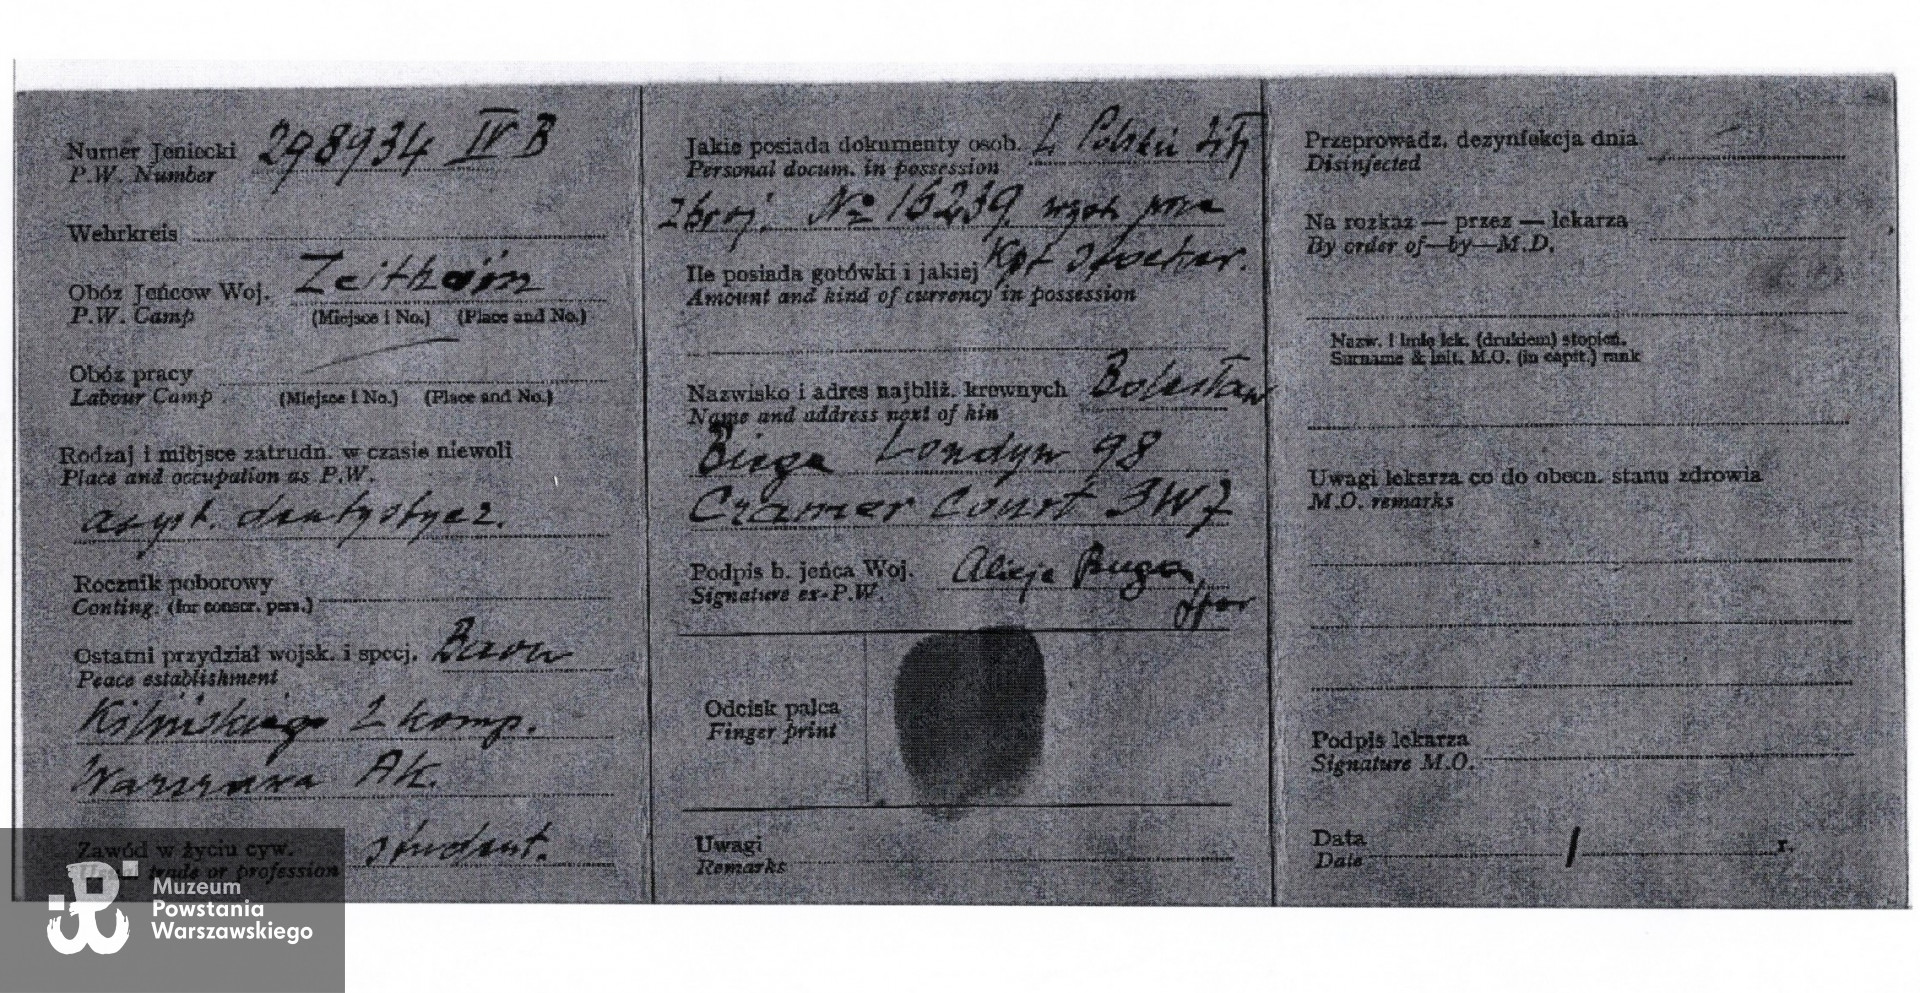 Numer Jeniecki 298934 IV B
P.W. Number
Wehrkreis
Obóz Jeńcow Woj. Zeithain
P.W. Camp (Miejsce i No.) (Place and No.)
Obóz pracy
Labour Camp (Miejsce i No.) (Place and No.)
Rodzaj i miejsce zatrudn. w czasie niewoli
Place and occupation as P.W.
asyst. dentystycz.
Rocznik poborowy
Conting. (for conscr. pers.)
Ostatni przydział wojsk. i specj. Baon
Peace establishment
Kilińskiego 2 komp.
Warszawa AK.
Zawód w życiu cyw. student.
trade or profession
Jakie posiada dokumenty osob. Polskich Sił
Personal docum. in possession
Zbroj. No 16239, wyst. przez
Ile posiada gotówki i jakiej Kpt
Amount and kind of currency in possession
Nazwisko i adres najbliż. krewnych Bolesław
Name and address next of kin
Londyn 98
Cramer Court SW7
Podpis b. jeńca Woj. Alicja
Signature ex-P.W.
Odcisk palca
Finger print
Uwagi
Remarks
Przeprowadz. dezynfekcja dnia
Disinfected
Na rozkaz — przez — lekarza
By order of—by—M.D.
Nazw. i imię lek. (drukiem) stopień.
Surname & init. M.O. (in capit.) rank
Uwagi lekarza co do obecn. stanu zdrowia
M.O. remarks
Podpis lekarza
Signature M.O.
Data / r.
Date
Muzeum
Powstania
Warszawskiego